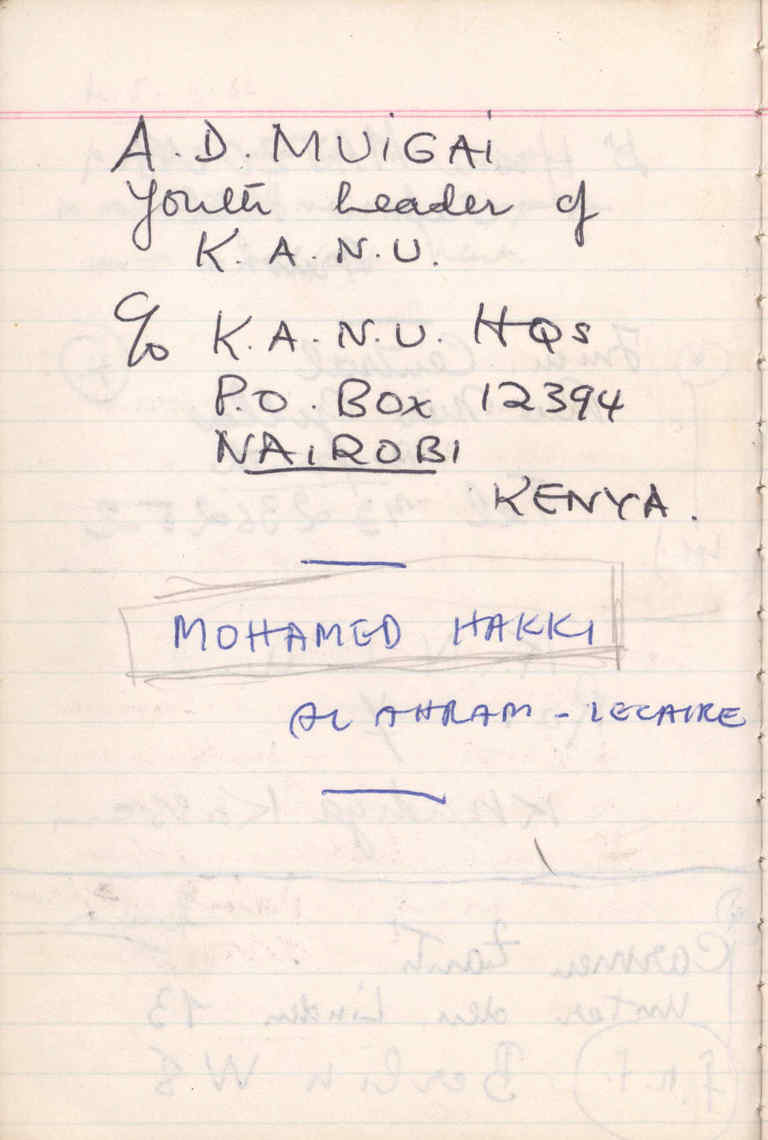 A. D. MUIGAI
Youth Leader of
K. A. N. U.
c/o K. A. N. U. HQs
P.O. Box 12394
NAIROBI
KENYA.
MOHAMED HAKKI
AL AHRAM - LECAIRE